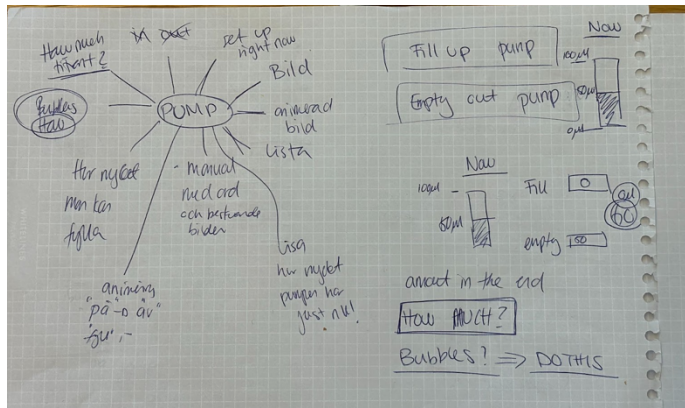 How much
titrant?
in out
set up
right now
Bild
animerad
bild
Lista
PUMP
Bubbles
How
Hur mycket
man kan
fylla
- manual
med ord
och beskrivande
bilder
Visa
hur mycket
pumpen har
just nu!
animering
"på"-o "av"
Fill up pump
Empty out pump
Now
100µl
50µl
0µl
Now
100µl
50µl
Fill
0
empty
50
GO
amount in the end
How MUCH?
Bubbles? ⇒ DO THIS